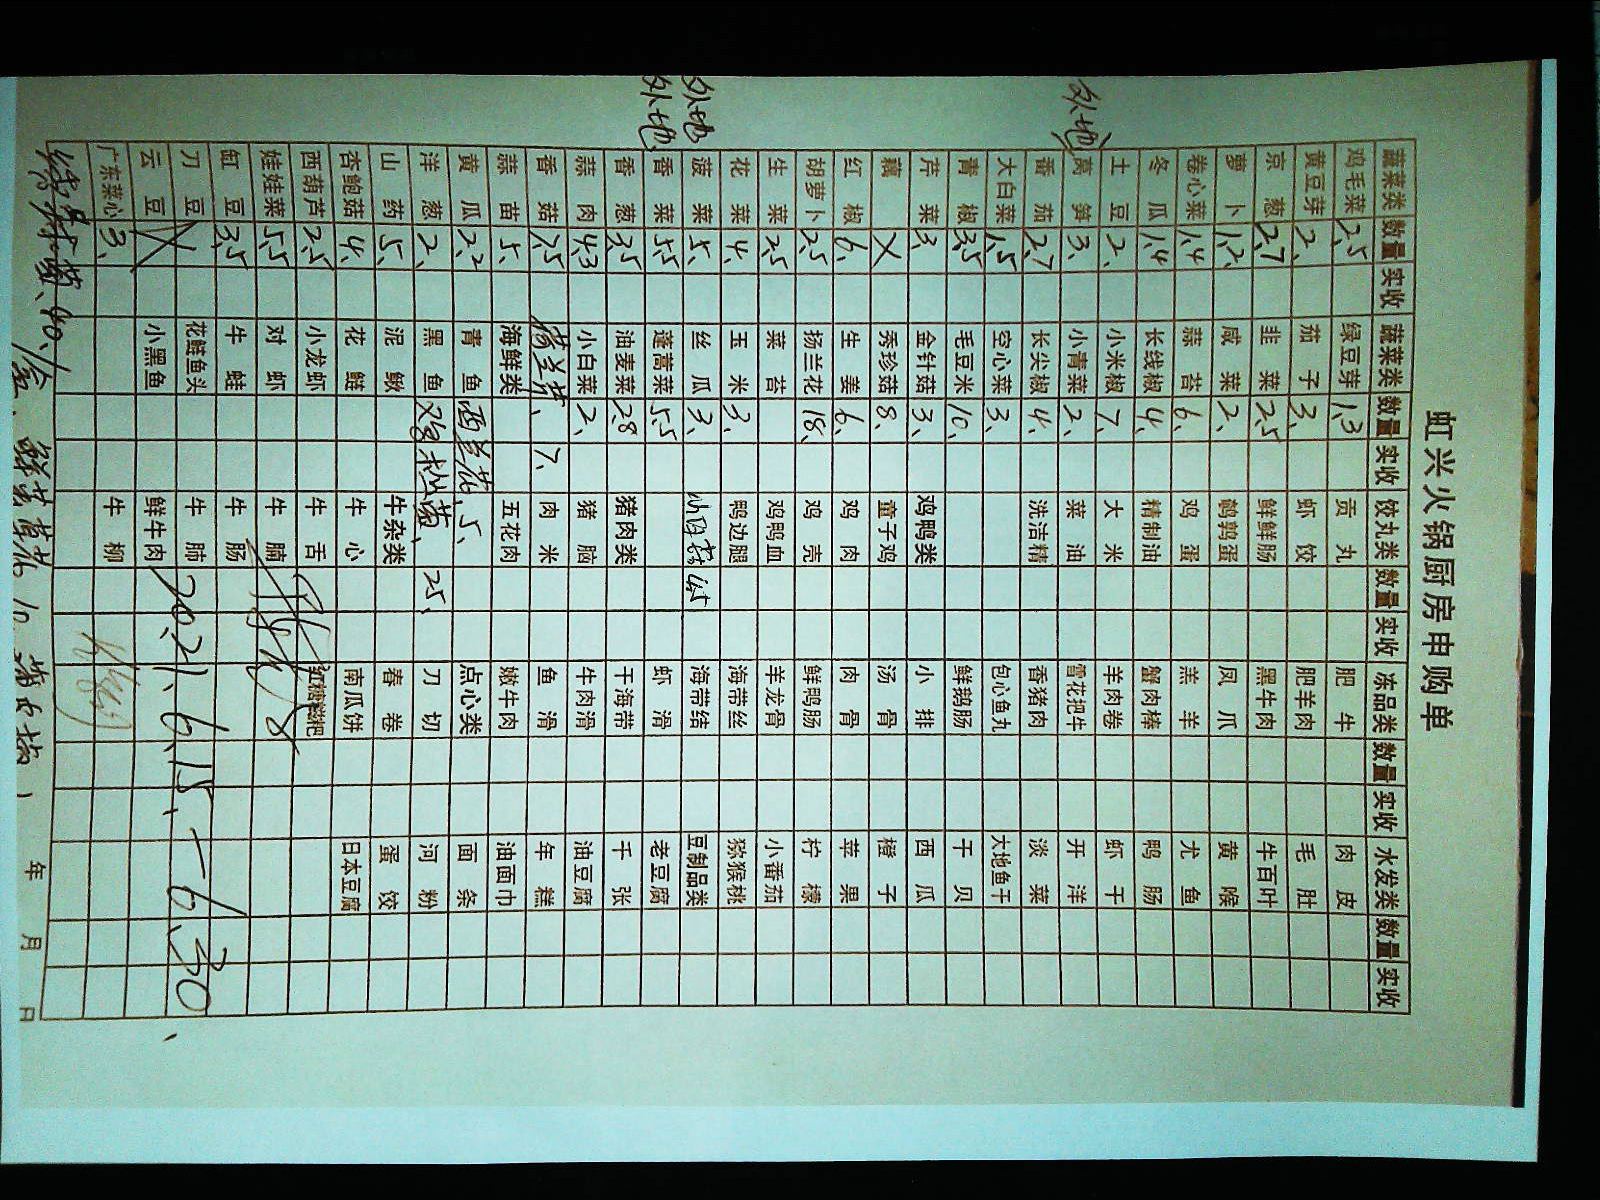 虹兴火锅厨房申购单
蔬菜类 数量 实收 蔬菜类 数量 实收 饺丸类 数量 实收 冻品类 数量 实收 水发类 数量 实收
鸡毛菜 2.5 绿豆芽 1.3 贡丸 肥牛 肉皮
黄豆芽 2、 茄子 3、 虾饺 肥羊肉 毛肚
京葱 2.7 韭菜 2.5 鲜鲜肠 黑牛肉 牛百叶
萝卜 1.2、 咸菜 2、 鹌鹑蛋 凤爪 黄喉
卷心菜 1.4 蒜苔 6、 鸡蛋 羔羊 尤鱼
冬瓜 1.4 长线椒 4、 精制油 蟹肉棒 鸭肠
土豆 2、 小米椒 7、 大米 羊肉卷 虾干
外地 莴笋 3、 小青菜 2、 菜油 雪花把牛 开洋
番茄 2.7 长尖椒 4、 洗洁精 香猪肉 淡菜
大白菜 1.5 空心菜 3、 包心鱼丸 大地鱼干
青椒 3.5 毛豆米 10、 鲜鹅肠 干贝
芹菜 3、 金针菇 3、 鸡鸭类 小排 西瓜
藕 X 秀珍菇 8、 童子鸡 汤骨 橙子
红椒 6、 生姜 6、 鸡肉 肉骨 苹果
胡萝卜 2.5 扬兰花 18、 鸡壳 鲜鸭肠 柠檬
生菜 2.5 菜苔 鸡鸭血 羊龙骨 小番茄
花菜 4、 玉米 3、 鸭边腿 海带丝 猕猴桃
外地 菠菜 5、 丝瓜 3、 4.5 海带结 豆制品类
外地 香菜 5.5 蓬蒿菜 5.5 虾滑 老豆腐
香葱 3.5 油麦菜 2.8 猪肉类 干海带 千张
蒜肉 4.3 小白菜 2、 猪脑 牛肉滑 油豆腐
香菇 7.5 7、 肉米 鱼滑 年糕
蒜苗 5、 海鲜类 五花肉 嫩牛肉 油面巾
黄瓜 2.2 青鱼 西兰花、5、 点心类 面条
洋葱 2、 黑鱼 25、 刀切 河粉
山药 5、 泥鳅 牛杂类 春卷 蛋饺
杏鲍菇 4、 花鲢 牛心 南瓜饼 日本豆腐
西葫芦 2.5 小龙虾 牛舌 红糖糍粑
娃娃菜 5.5 对虾 牛腩
缸豆 3.5 牛蛙 牛肠
刀豆 X 花鲢鱼头 牛肺
云豆 X 小黑鱼 鲜牛肉 2021、6.15、—6.30、
广东菜心 3、 牛柳
年 月 日